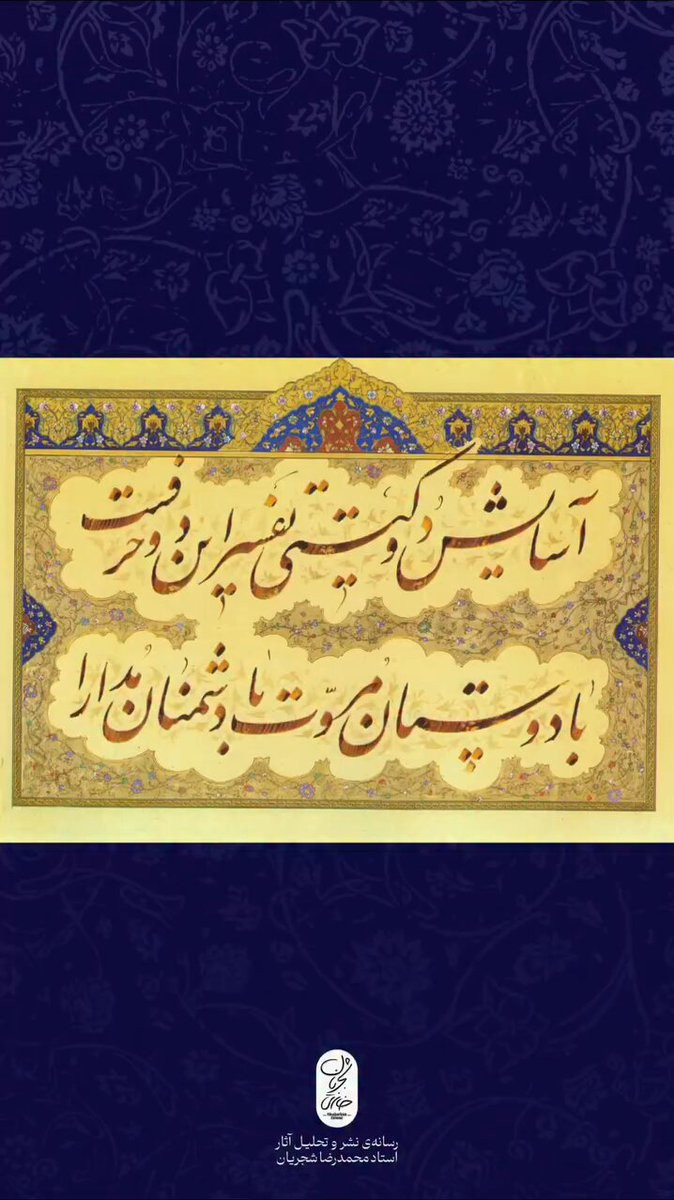 آسایش دو گیتی تفسیر این دو حرفست
با دوستان مروّت با دشمنان مدارا
رسانه‌ی نشر و تحلیل آثار
استاد محمدرضا شجریان